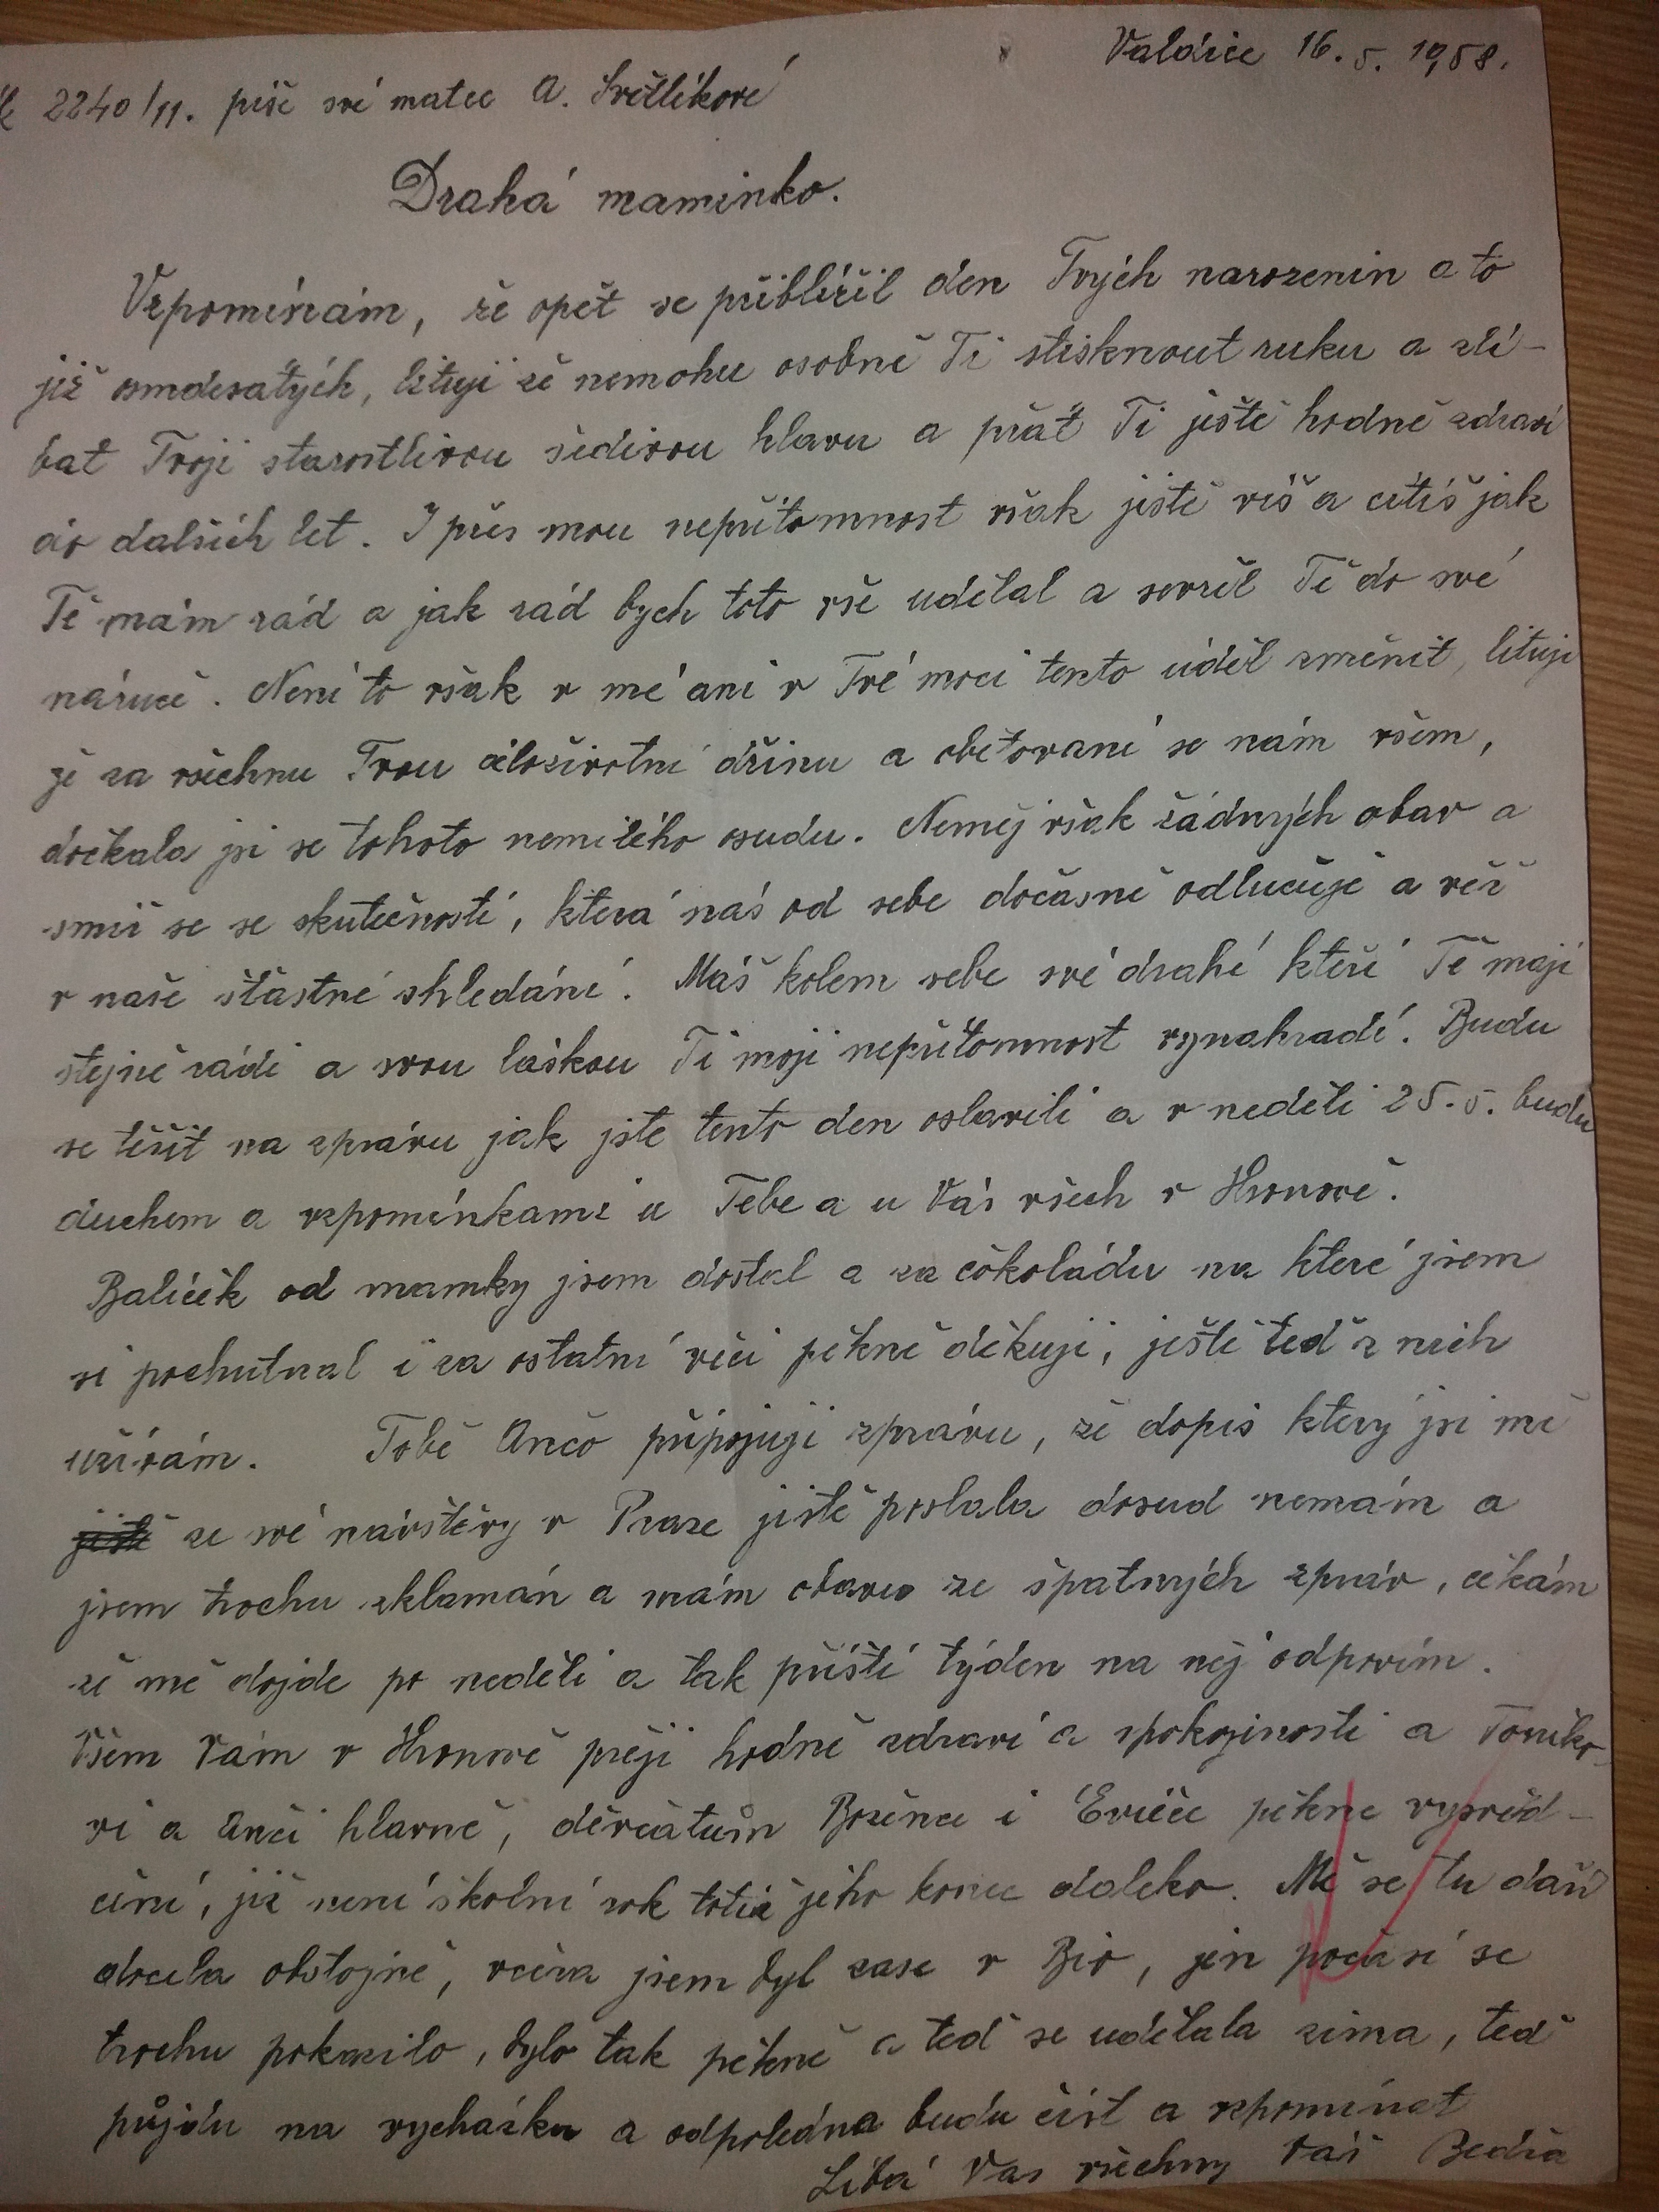 Valdice 16. 5. 1958.
2240/11. píše své matce A. Světlíkové
Drahá maminko.
Vzpomínám, že opět se přiblížil den Tvých narozenin a to
již osmdesatých, lituji že nemohu osobně Ti stisknout ruku a zlí-
bat Tvoji starostlivou šedivou hlavu a přát Ti ještě hodně zdraví
do dalších let. I přes mou nepřítomnost však jistě víš a cítíš jak
Tě mám rád a jak rád bych toto vše udělal a sevřel Tě do své
náruče. Není to však v mé ani v Tvé moci tento úděl změnit, lituji
že za všechnu Tvou celoživotní dřinu a obětovaní se nám všem,
dočkala jsi se tohoto nemilého osudu. Neměj však žádných obav a
smiř se se skutečností, která nás od sebe dočasně odlučuje a věř
v naše šťastné shledání. Máš kolem sebe své drahé kteří Tě mají
stejně rádi a svou láskou Ti moji nepřítomnost vynahradí. Budu
se těšit na zprávu jak jste tento den oslavili a v neděli 25. 5. budu
duchem a vzpomínkami u Tebe a u Vás všech v Hronově.
Balíček od mamky jsem dostal a za čokoládu na které jsem
si pochutnal i za ostatní věci pěkně děkuji, ještě teď z nich
užívám. Tobě Ančo připojuji zprávu, že dopis který jsi mě
jistě ze své návštěvy v Praze jistě poslala dosud nemám a
jsem trochu zklamán a mám obavu ze špatných zpráv, čekám
že mě dojde po neděli a tak příští týden na něj odpovím.
Všem Vám v Hronově přeji hodně zdraví a spokojnosti a Toníko-
vi a Anči hlavně, děvčatům Božence i Evičce pěkné vysvěd-
čení, již není školní rok totiž jeho konec daleko. Mě se tu daří
docela obstojně, včera jsem byl zase v Bio, jen počasí se
trochu pokazilo, bylo tak pěkně a teď se udělala zima, teď
půjdu na vycházku a odpoledne budu číst a vzpomínat
Líbá Vas všechny Váš Bedřa